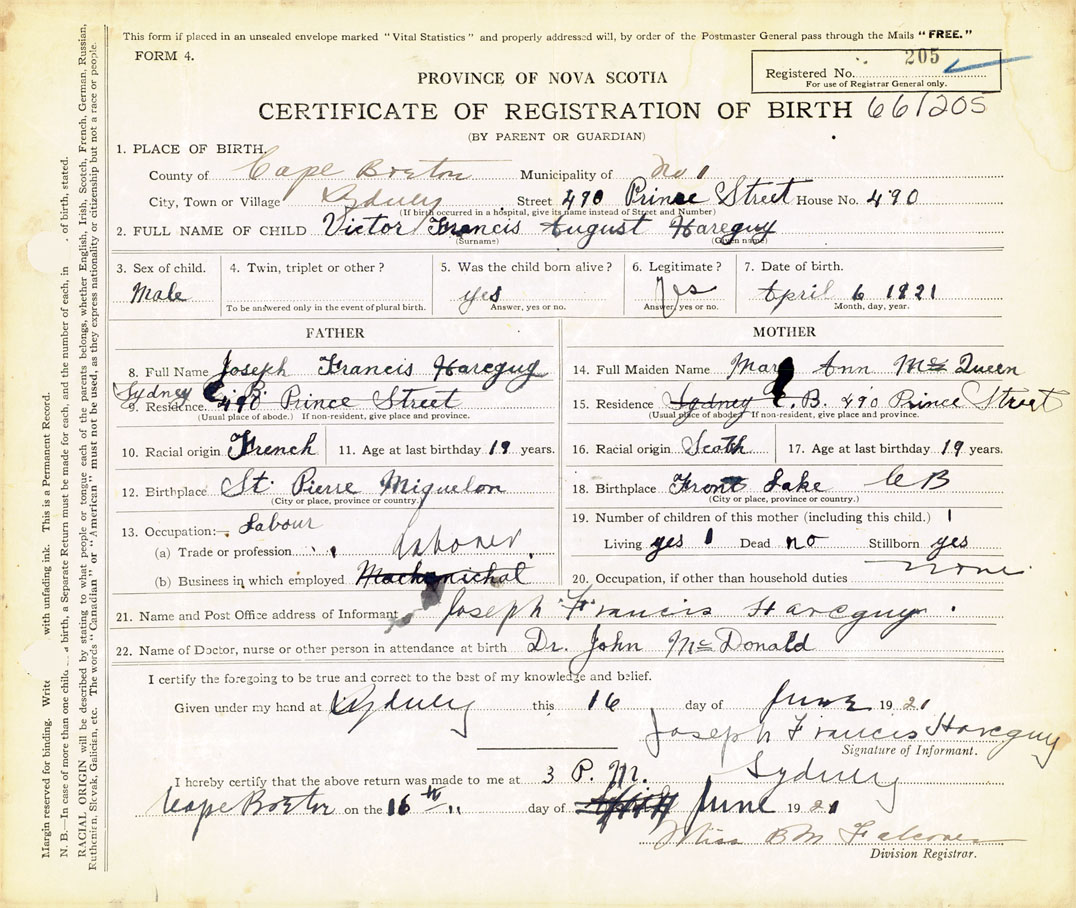 This form if placed in an unsealed envelope marked "Vital Statistics" and properly addressed will, by order of the Postmaster General pass through the Mails "FREE."
FORM 4.
205
Registered No.
For use of Registrar General only.
PROVINCE OF NOVA SCOTIA
CERTIFICATE OF REGISTRATION OF BIRTH 661205
(BY PARENT OR GUARDIAN)
1. PLACE OF BIRTH.
County of Cape Breton Municipality of No 1
City, Town or Village Sydney Street 490 Prince Street House No. 490
(If birth occurred in a hospital, give its name instead of Street and Number)
2. FULL NAME OF CHILD Victor Francis August Hareguy
(Surname) (Given name)
3. Sex of child. 4. Twin, triplet or other? 5. Was the child born alive? 6. Legitimate? 7. Date of birth.
Male yes Yes April 6 1921
To be answered only in the event of plural birth. Answer, yes or no. Answer, yes or no. Month, day, year.
FATHER MOTHER
8. Full Name Joseph Francis Hareguy
Sydney C. B.
9. Residence. 490 Prince Street
(Usual place of abode.) If non-resident, give place and province.
10. Racial origin French 11. Age at last birthday 19 years.
12. Birthplace St. Pierre Miquelon
(City or place, province or country.)
13. Occupation:— Labour
(a) Trade or profession laborer.
(b) Business in which employed Mechanichal
14. Full Maiden Name Mary Ann Mc Queen
15. Residence Sydney C. B. 490 Prince Street
(Usual place of abode.) If non-resident, give place and province.
16. Racial origin Scoth 17. Age at last birthday 19 years.
18. Birthplace Front Lake C B
(City or place, province or country.)
19. Number of children of this mother (including this child.) 1
Living yes 1 Dead no Stillborn yes
20. Occupation, if other than household duties none.
21. Name and Post Office address of Informant Joseph Francis Hareguy.
22. Name of Doctor, nurse or other person in attendance at birth Dr. John Mc Donald
I certify the foregoing to be true and correct to the best of my knowledge and belief.
Given under my hand at Sydney this 16 day of June 1921
Joseph Francis Hareguy
Signature of Informant.
I hereby certify that the above return was made to me at 3 P. M. Sydney
Cape Breton on the 16th day of June 1921
Miss B M Falconer
Division Registrar.
Margin reserved for binding. Write with unfading ink. This is a Permanent Record.
N. B.—In case of more than one child birth, a Separate Return must be made for each, and the number of each, in of birth, stated.
RACIAL ORIGIN will be described by stating to what people or tongue each of the parents belongs, whether English, Irish, Scotch, French, German, Russian,
Ruthenien, Slovak, Galician, etc. The words "Canadian" or "American" must not be used, as they express nationality or citizenship but not a race or people.